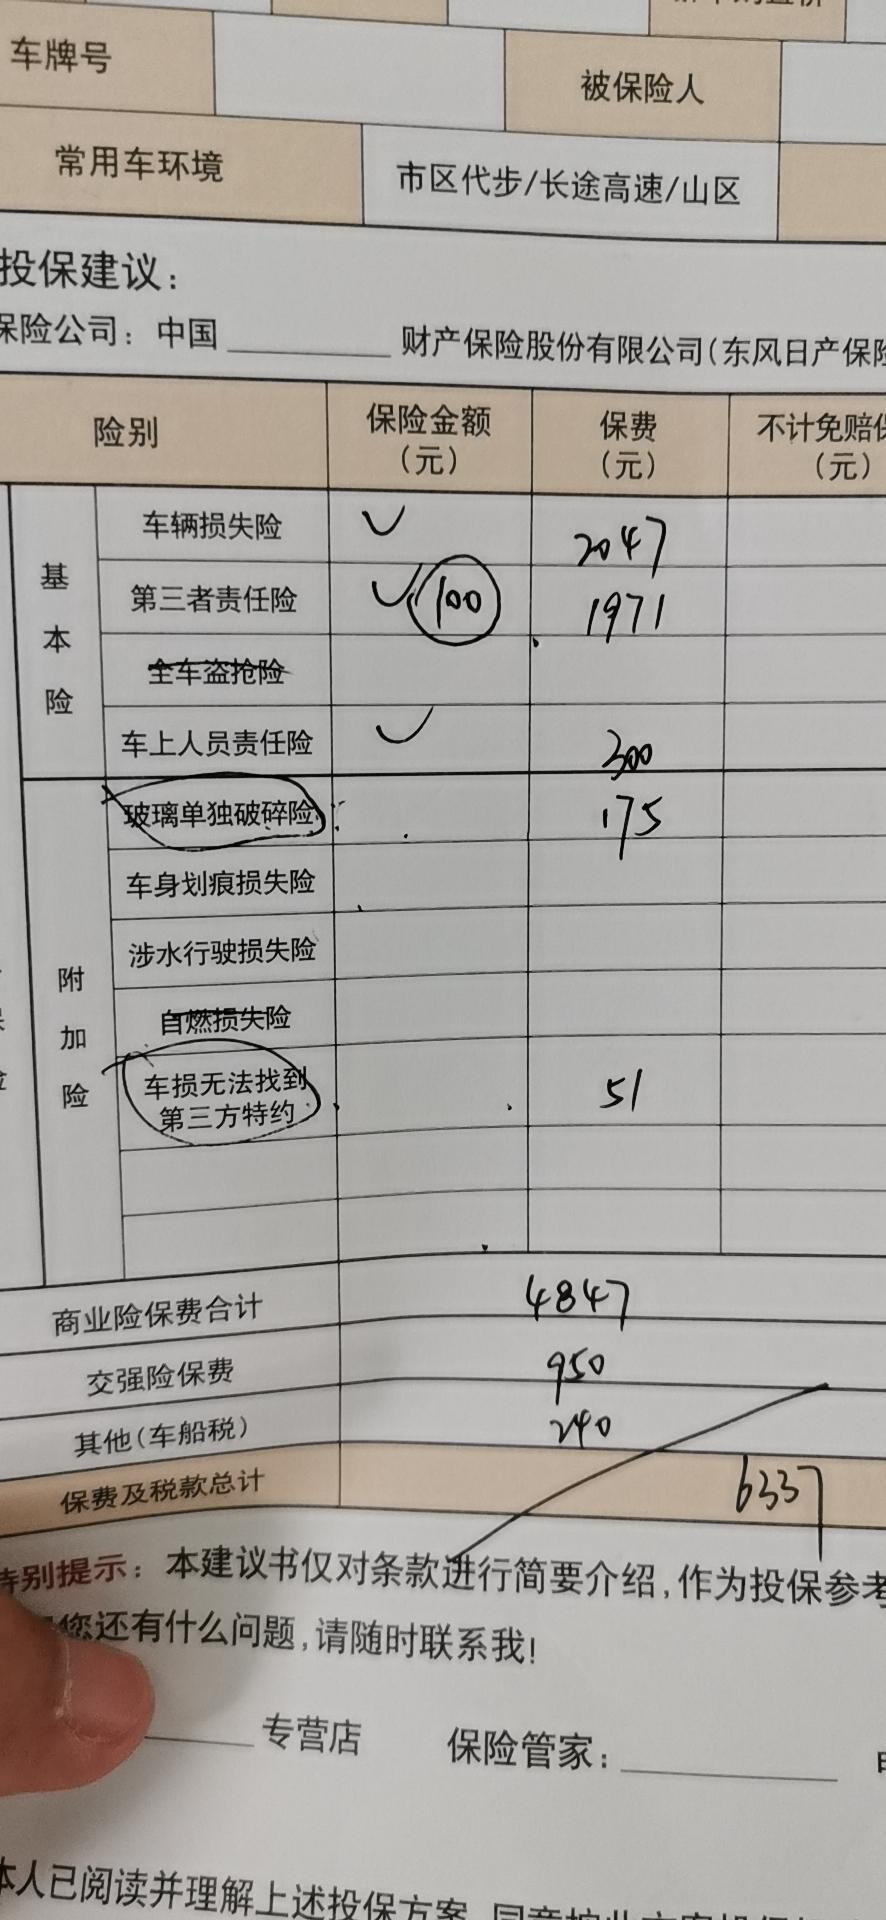 车牌号 被保险人
常用车环境 市区代步/长途高速/山区
投保建议:
保险公司: 中国 财产保险股份有限公司(东风日产保险
险别 保险金额(元) 保费(元) 不计免赔保(元)
基本险
车辆损失险 ✓ 2047
第三者责任险 ✓ 100 1971
全车盗抢险
车上人员责任险 ✓ 300
附加险
玻璃单独破碎险 175
车身划痕损失险
涉水行驶损失险
自燃损失险
车损无法找到
第三方特约 51
商业险保费合计 4847
交强险保费 950
其他(车船税) 240
保费及税款总计 6337
特别提示: 本建议书仅对条款进行简要介绍,作为投保参考
您还有什么问题,请随时联系我!
专营店 保险管家:
本人已阅读并理解上述投保方案